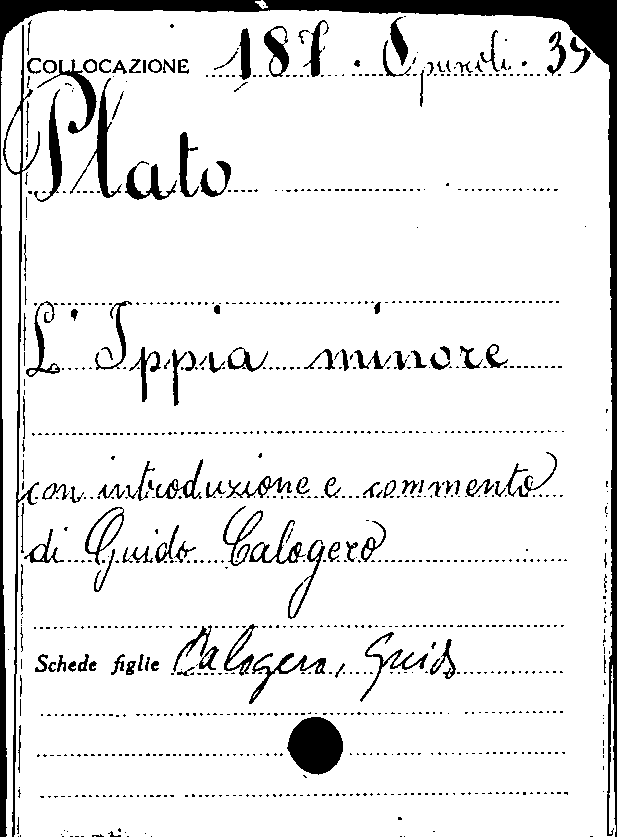 COLLOCAZIONE 187. Opuscoli. 39
Plato
L'Ippia minore
con introduzione e commento
di Guido Calogero
Schede figlie Calogero, Guido